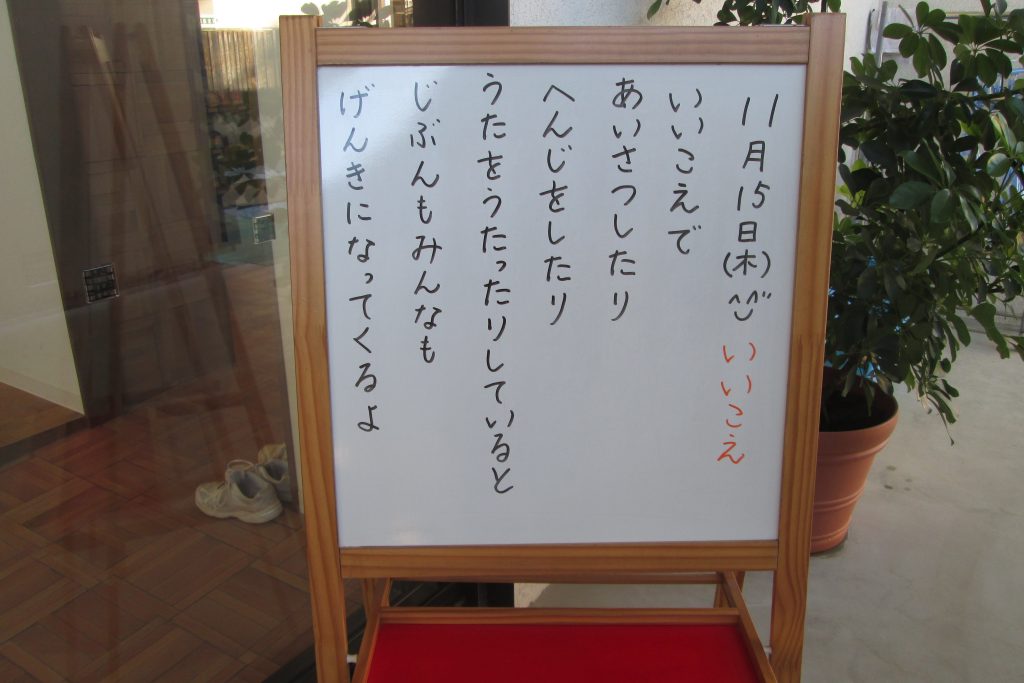 11月15日(木)^^ いいこえ
いいこえで
あいさつしたり
へんじをしたり
うたをうたったりしていると
じぶんもみんなも
げんきになってくるよ